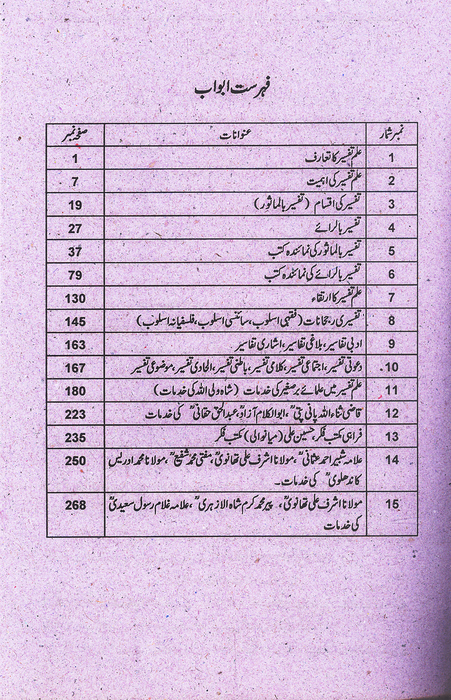 فہرست ابواب
نمبر شمار عنوانات صفحہ نمبر
1 علم تفسیر کا تعارف 1
2 علم تفسیر کی اہمیت 7
3 تفسیر کی اقسام (تفسیر بالماثور) 19
4 تفسیر بالرائے 27
5 تفسیر بالماثور کی نمائندہ کتب 37
6 تفسیر بالرائے کی نمائندہ کتب 79
7 علم تفسیر کا ارتقاء 130
8 تفسیری رجحانات (فقہی اسلوب، سائنسی اسلوب، فلسفیانہ اسلوب) 145
9 ادبی تفاسیر، بلاغی تفاسیر، اشاری تفاسیر 163
10 دعوتی تفسیر، اجتماعی تفسیر، کلامی تفسیر، باطنی تفسیر، الحادی تفسیر، موضوعی تفسیر 167
11 علم تفسیر میں علمائے برصغیر کی خدمات (شاہ ولی اللہ کی خدمات) 180
12 قاضی ثناء اللہ پانی پتیؒ، ابوالکلام آزاد، عبدالحق حقانیؒ کی خدمات 223
13 فراہی مکتب فکر، حسین علی (میانوالی) مکتب فکر 235
14 علامہ شبیر احمد عثمانیؒ، مولانا اشرف علی تھانویؒ، مفتی محمد شفیعؒ، مولانا محمد ادریس 250
کاندھلویؒ کی خدمات۔
15 مولانا اشرف علی تھانویؒ، پیر محمد کرم شاہ الازہریؒ، علامہ غلام رسول سعیدیؒ 268
کی خدمات